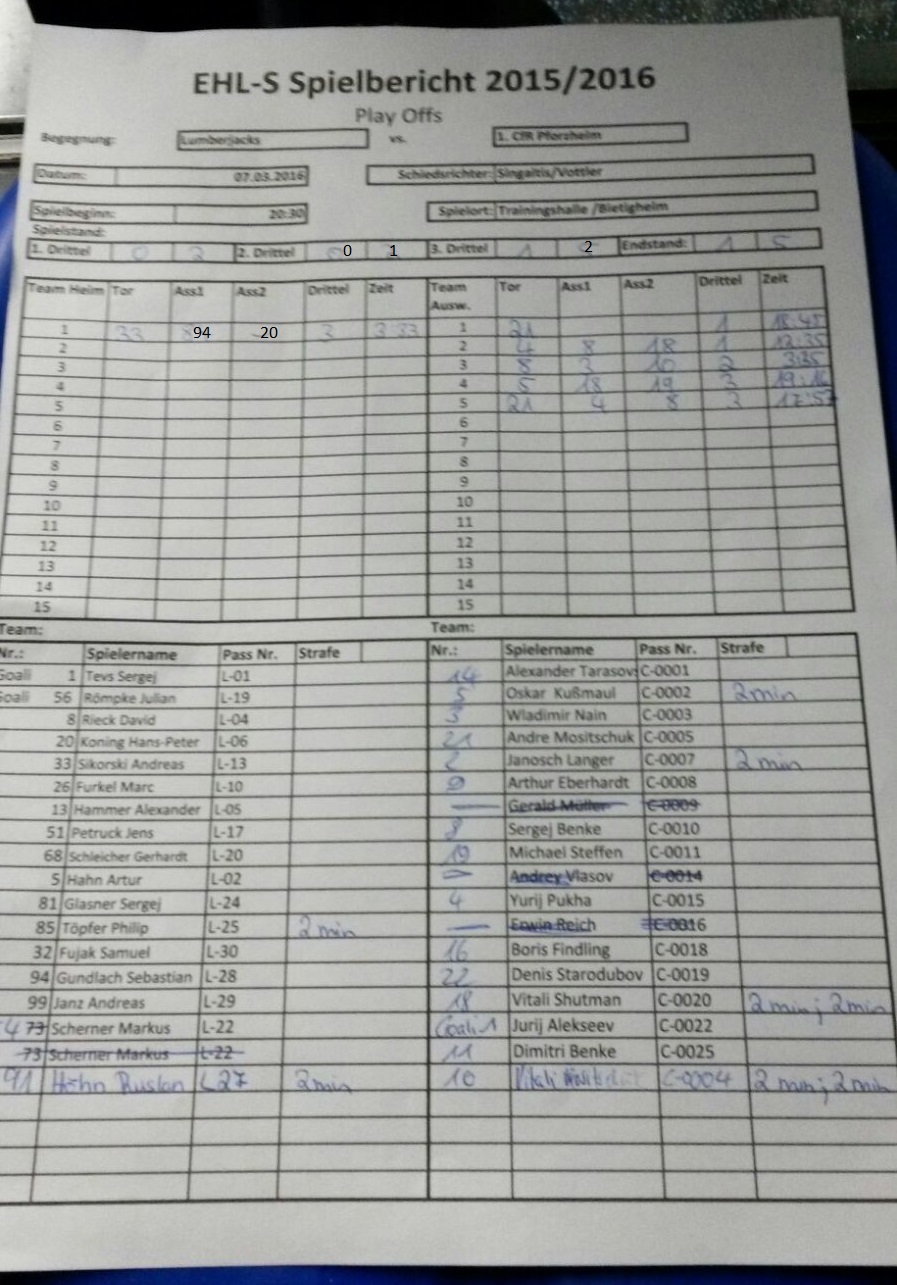 EHL-S Spielbericht 2015/2016
Play Offs
Begegnung: Lumberjacks vs. 1. CfR Pforzheim
Datum: 07.03.2016 Schiedsrichter: Singaitis/Vottler
Spielbeginn: 20:30 Spielort: Trainingshalle /Bietigheim
Spielstand:
1. Drittel 0 2 2. Drittel 0 1 3. Drittel 1 2 Endstand: 1 5
Team Heim Tor Ass1 Ass2 Drittel Zeit Team Ausw. Tor Ass1 Ass2 Drittel Zeit
1 33 94 20 3 3:33 1 21 1 18:45
2 2 4 8 18 1 12:35
3 3 8 3 10 2 3:35
4 4 5 18 19 3 19:16
5 5 21 4 8 3 17:57
6 6
7 7
8 8
9 9
10 10
11 11
12 12
13 13
14 14
15 15
Team: Team:
Nr.: Spielername Pass Nr. Strafe Nr.: Spielername Pass Nr. Strafe
Goali 1 Tevs Sergej L-01 14 Alexander Tarasov C-0001
Goali 56 Römpke Julian L-19 5 Oskar Kußmaul C-0002 2min
8 Rieck David L-04 3 Wladimir Nain C-0003
20 Koning Hans-Peter L-06 21 Andre Mositschuk C-0005
33 Sikorski Andreas L-13 2 Janosch Langer C-0007 2min
26 Furkel Marc L-10 Arthur Eberhardt C-0008
13 Hammer Alexander L-05 Gerald Müller C-0009
51 Petruck Jens L-17 8 Sergej Benke C-0010
68 Schleicher Gerhardt L-20 19 Michael Steffen C-0011
5 Hahn Artur L-02 Andrey Vlasov C-0014
81 Glasner Sergej L-24 4 Yurij Pukha C-0015
85 Töpfer Philip L-25 2min Erwin Reich C-0016
32 Fujak Samuel L-30 16 Boris Findling C-0018
94 Gundlach Sebastian L-28 22 Denis Starodubov C-0019
99 Janz Andreas L-29 18 Vitali Shutman C-0020 2min; 2min
4 73 Scherner Markus L-22 Goali 1 Jurij Alekseev C-0022
73 Scherner Markus L-22 11 Dimitri Benke C-0025
91 Höhn Ruslan L27 2min 10 Vitali C-0004 2min; 2min